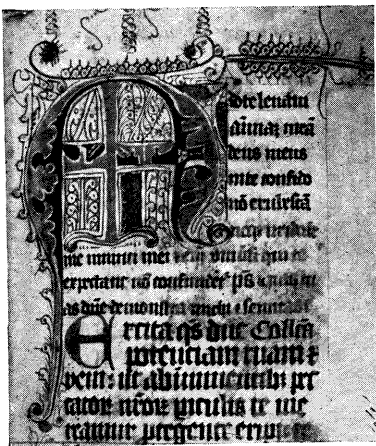 Ad te leuaui
aīmaȝ meā
deus meus
in te confido
nō erubescā
Neqȝ irrideāt
me inimici mei etenim vniuersi qui te
expectant nō confundētʳ p̄s
as dn̄e demonstra michi et semitas
Excita qs̄ dn̄e Collcā
potenciam tuam ⁊
veni: ut ab iminentibȝ pec
catoꝝ nr̄oꝝ piculis te me
reamur ꝓtegente eripi te